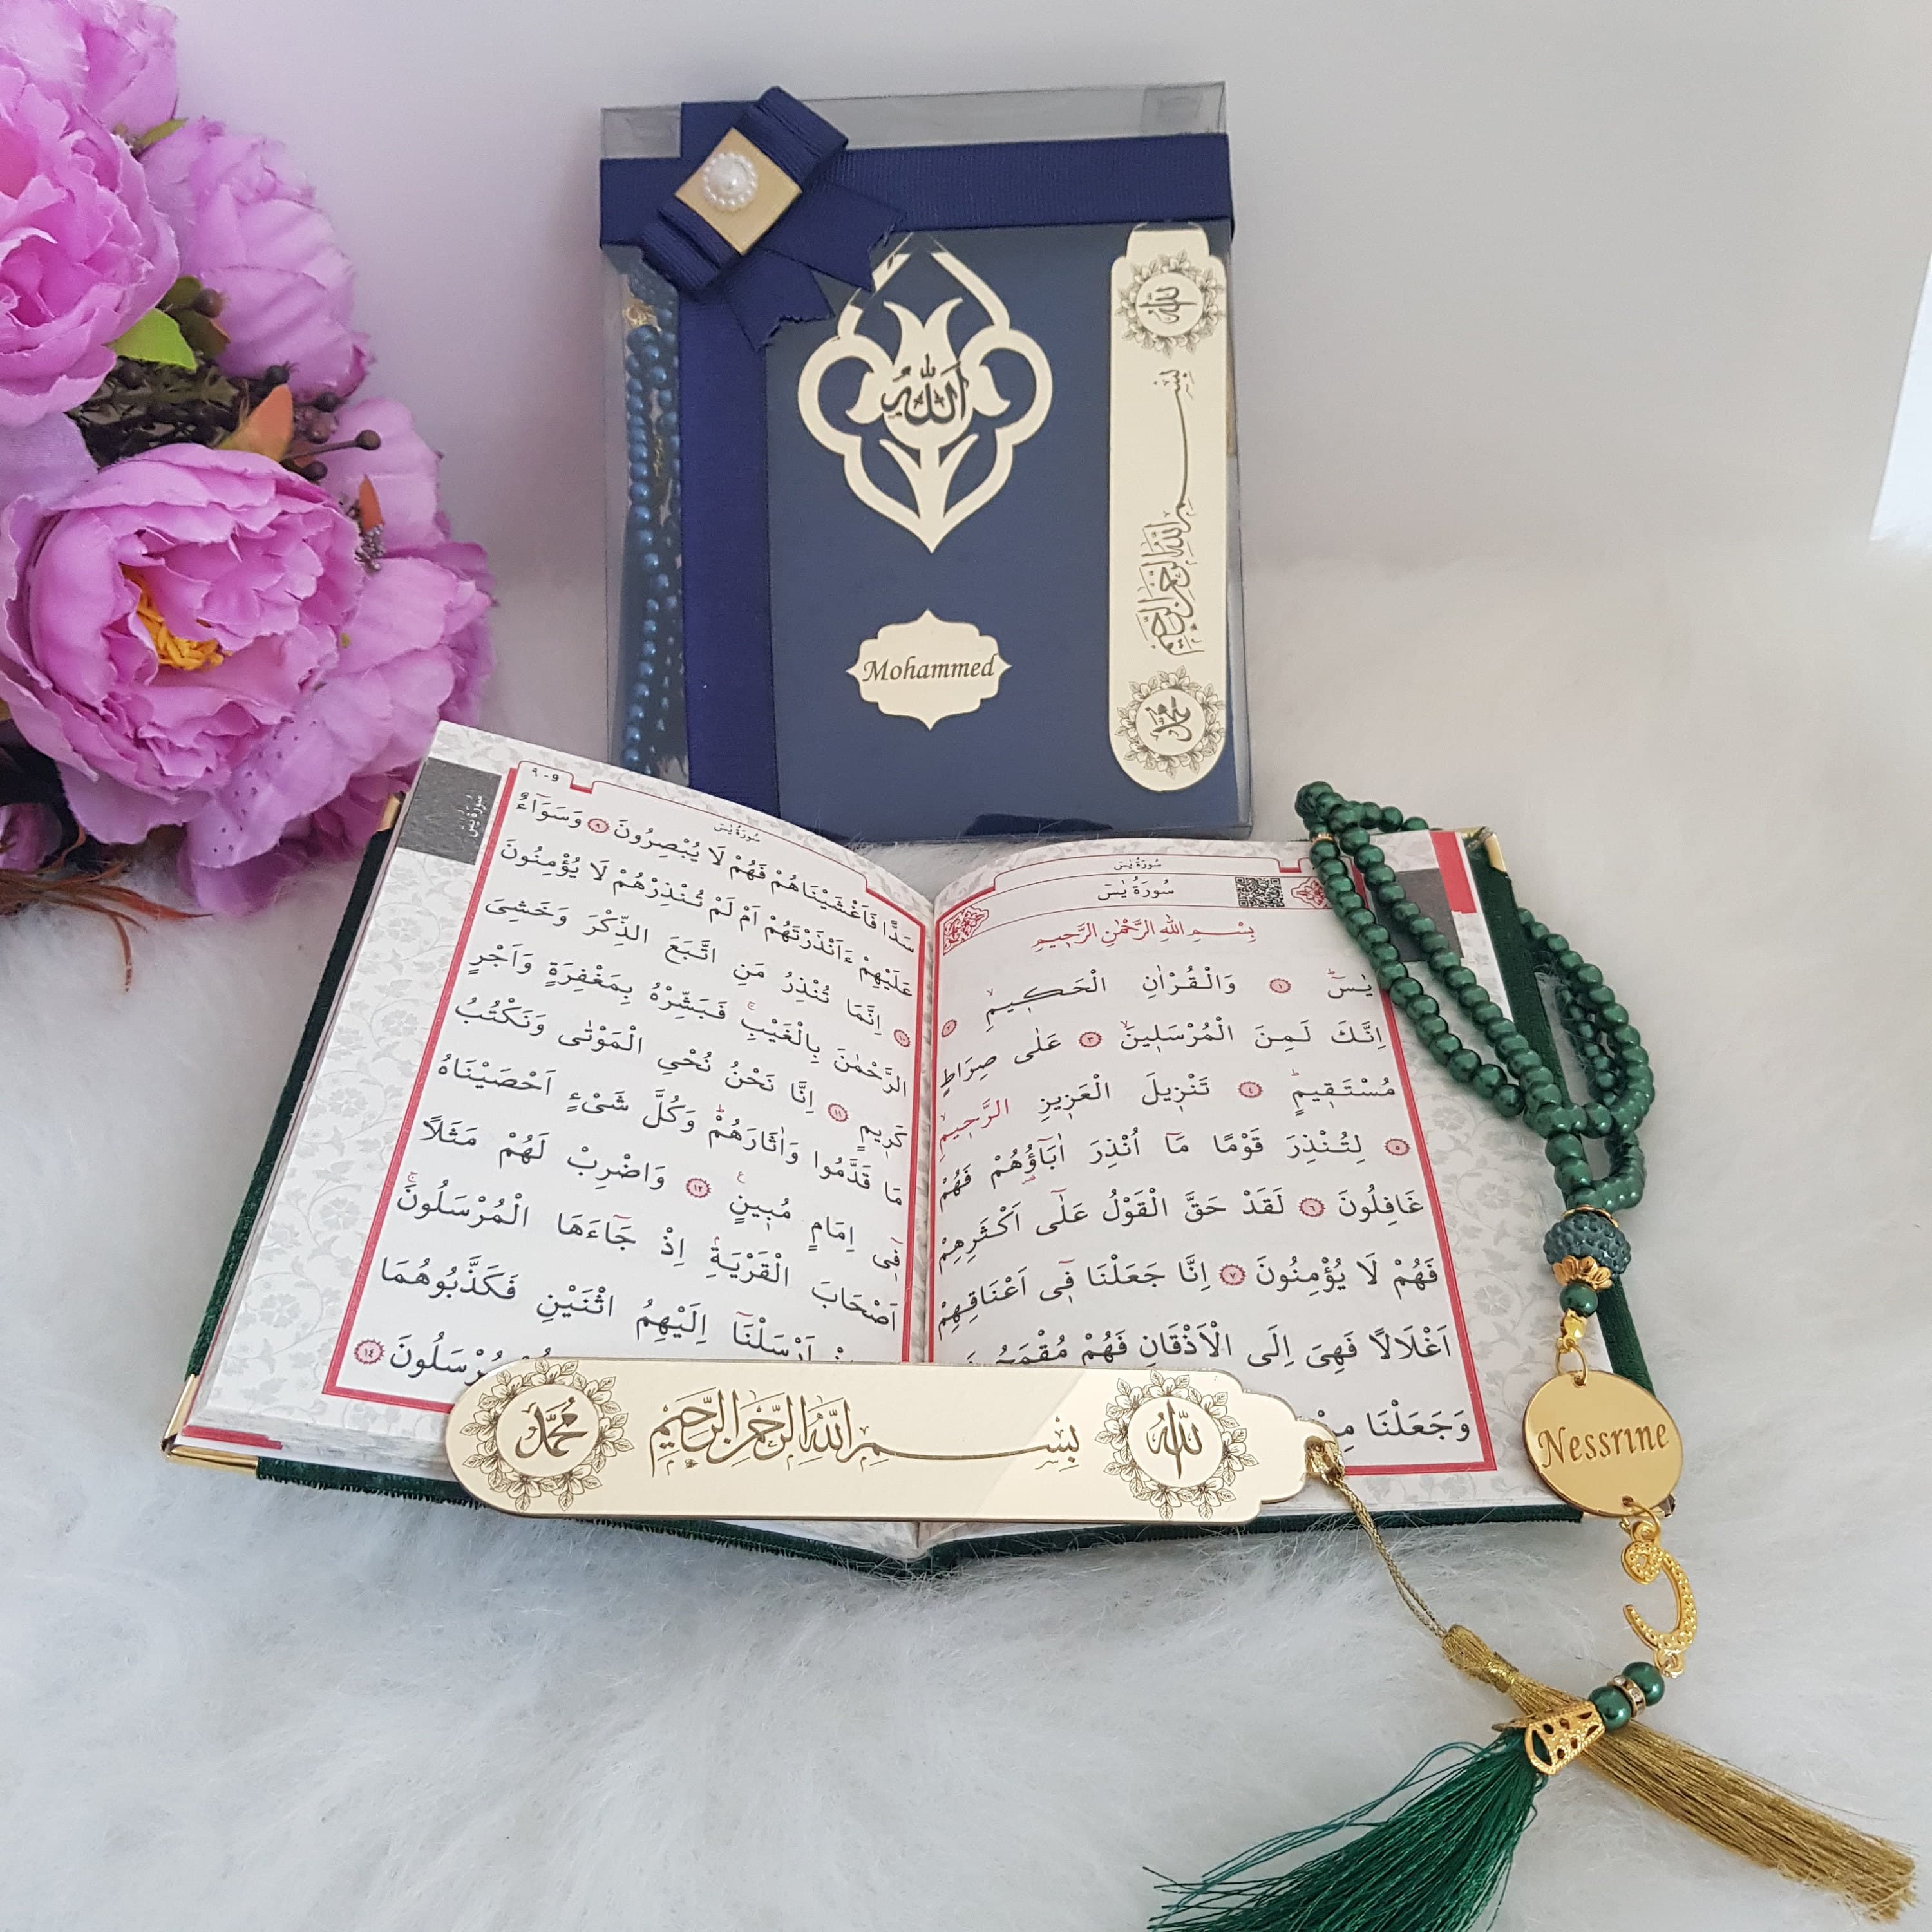 الله
Mohammed
الله
بسم الله الرحمن الرحيم
محمد
سُورَةُ يٰسٓ
سُورَةُ يٰسٓ
بِسْمِ اللّٰهِ الرَّحْمٰنِ الرَّحٖيمِ
يٰسٓ ﴿١﴾ وَالْقُرْاٰنِ الْحَكٖيمِ ﴿٢﴾
اِنَّكَ لَمِنَ الْمُرْسَلٖينَ ﴿٣﴾ عَلٰى صِرَاطٍ
مُسْتَقٖيمٍ ﴿٤﴾ تَنْزٖيلَ الْعَزٖيزِ الرَّحٖيمِ
﴿٥﴾ لِتُنْذِرَ قَوْمًا مَٓا اُنْذِرَ اٰبَٓاؤُ۬هُمْ فَهُمْ
غَافِلُونَ ﴿٦﴾ لَقَدْ حَقَّ الْقَوْلُ عَلٰٓى اَكْثَرِهِمْ
فَهُمْ لَا يُؤْمِنُونَ ﴿٧﴾ اِنَّا جَعَلْنَا فٖٓى اَعْنَاقِهِمْ
اَغْلَالًا فَهِىَ اِلَى الْاَذْقَانِ فَهُمْ مُقْمَحُونَ
وَجَعَلْنَا مِنْ
٩
سُورَةُ يٰسٓ
سُورَةُ يٰسٓ
سَدًّا فَاَغْشَيْنَاهُمْ فَهُمْ لَا يُبْصِرُونَ ﴿٩﴾ وَسَوَٓاءٌ
عَلَيْهِمْ ءَاَنْذَرْتَهُمْ اَمْ لَمْ تُنْذِرْهُمْ لَا يُؤْمِنُونَ
﴿١٠﴾ اِنَّمَا تُنْذِرُ مَنِ اتَّبَعَ الذِّكْرَ وَخَشِىَ
الرَّحْمٰنَ بِالْغَيْبِۚ فَبَشِّرْهُ بِمَغْفِرَةٍ وَاَجْرٍ
كَرٖيمٍ ﴿١١﴾ اِنَّا نَحْنُ نُحْىِ الْمَوْتٰى وَنَكْتُبُ
مَا قَدَّمُوا وَاٰثَارَهُمْؕ وَكُلَّ شَىْءٍ اَحْصَيْنَاهُ
فٖٓى اِمَامٍ مُبٖينٍ ﴿١٢﴾ وَاضْرِبْ لَهُمْ مَثَلًا
اَصْحَابَ الْقَرْيَةِۘ اِذْ جَٓاءَهَا الْمُرْسَلُونَۚ
اَرْسَلْنَٓا اِلَيْهِمُ اثْنَيْنِ فَكَذَّبُوهُمَا
مُرْسَلُونَ ﴿١٤﴾
الله
بسم الله الرحمن الرحيم
محمد
Nessrine